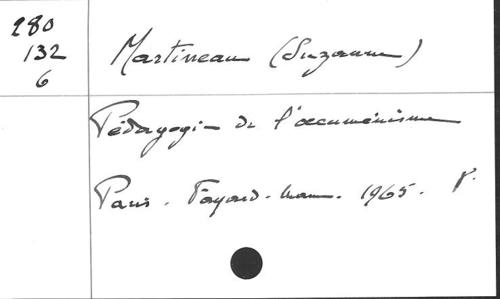 280
132
6
Martineau (Suzanne)
Pédagogie de l'œcuménisme
Paris. Fayard-Mame. 1965.